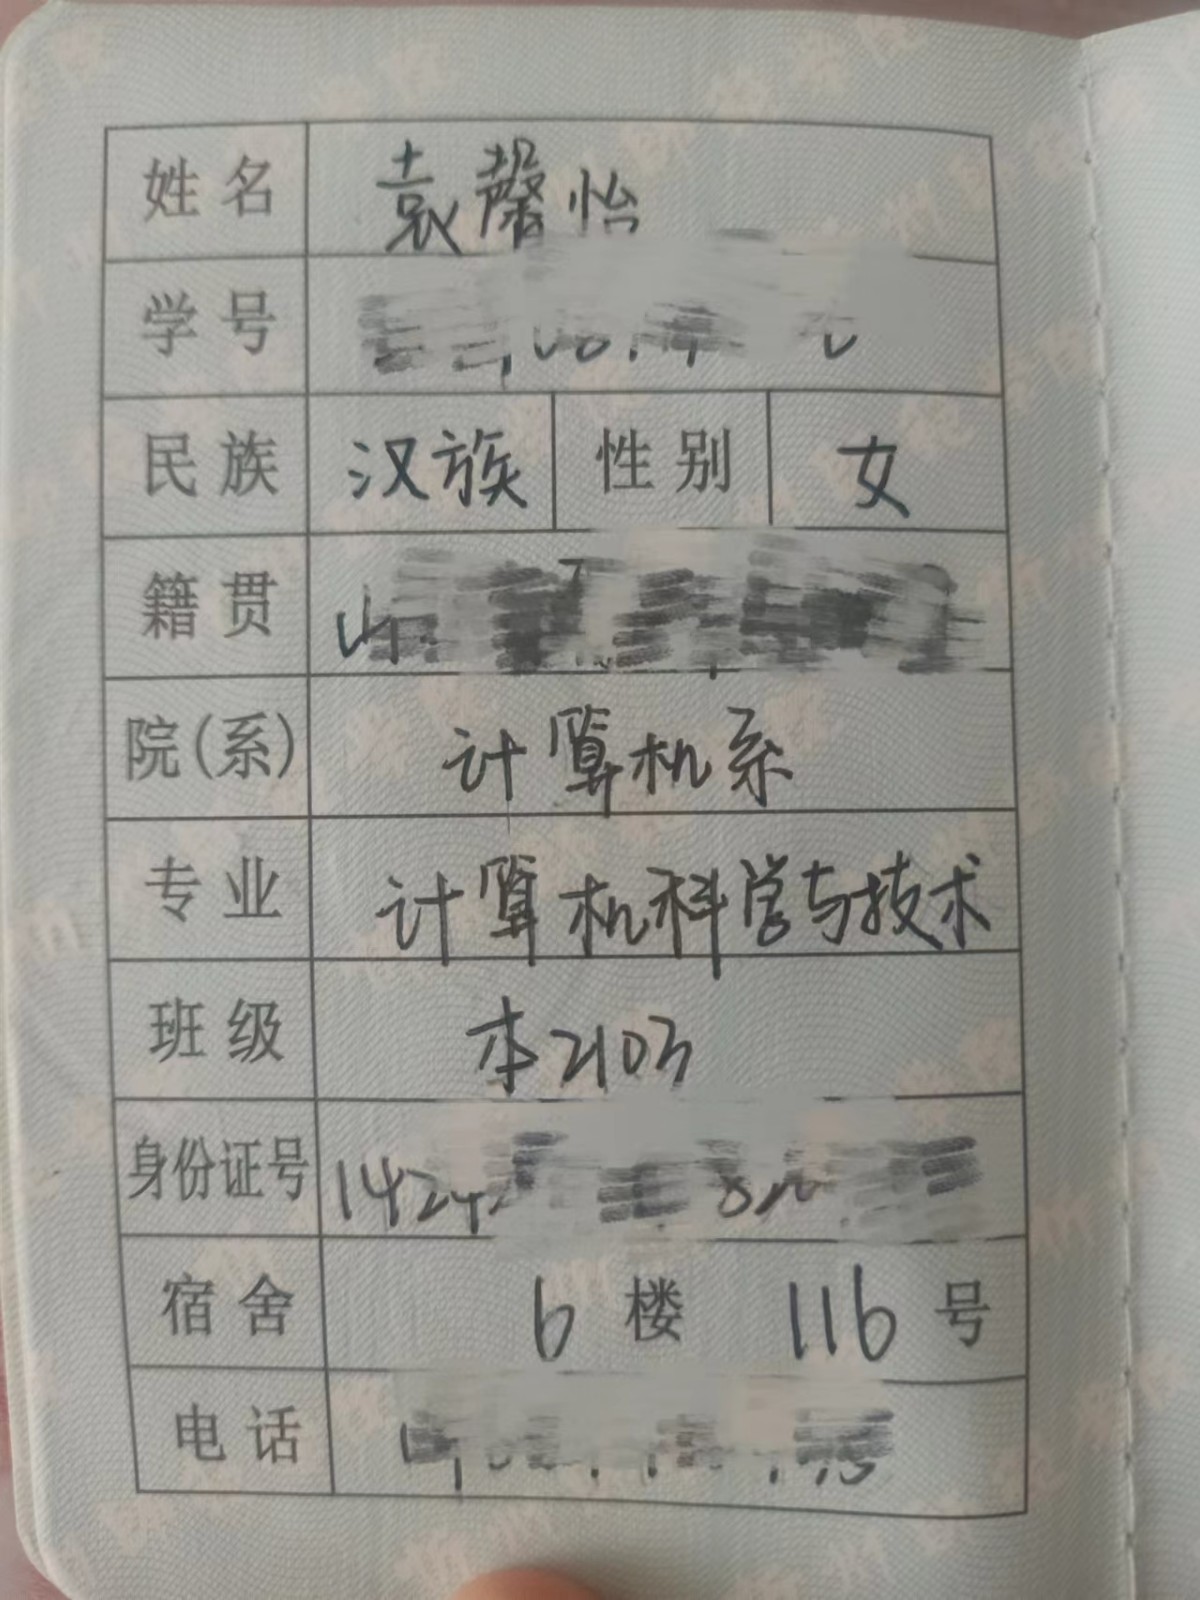 姓名 袁馨怡
学号
民族 汉族 性别 女
籍贯
院(系) 计算机系
专业 计算机科学与技术
班级 本2103
身份证号
宿舍 6 楼 116 号
电话